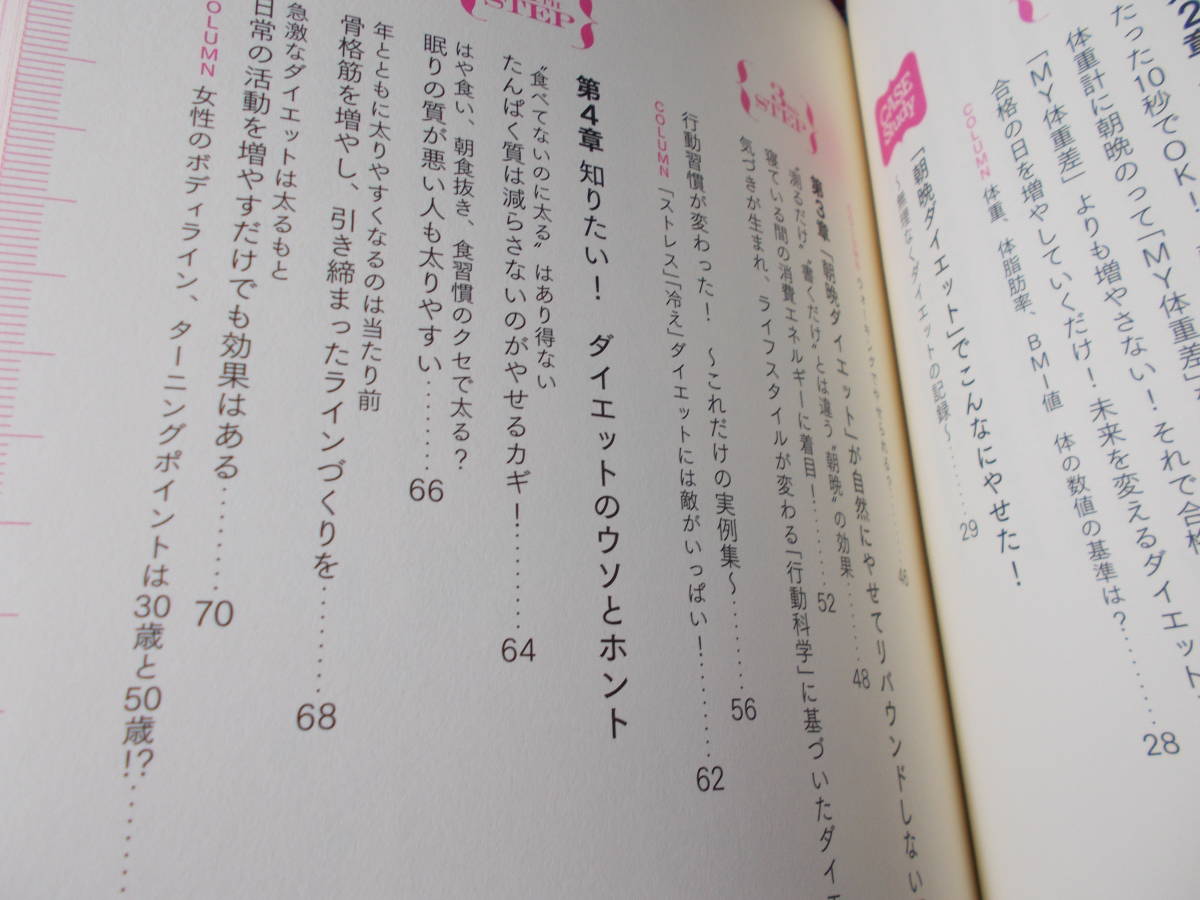 2章
たった10秒でOK!
体重計に朝晩のって「MY体重差」
「MY体重差」よりも増やさない!それで合格
合格の日を増やしていくだけ!未来を変えるダイエット
COLUMN 体重、体脂肪率、BMI値 体の数値の基準は?………28
CASE Study
「朝晩ダイエット」でこんなにやせた!
～無理なくダイエットの記録～………29
ウォーキングでやせられる?………46
3 STEP
第3章「朝晩ダイエット」が自然にやせてリバウンドしない
"測るだけ""書くだけ"とは違う"朝晩"の効果………48
寝ている間の消費エネルギーに着目!………52
気づきが生まれ、ライフスタイルが変わる「行動科学」に基づいたダイエ
行動習慣が変わった! ～これだけの実例集～………56
COLUMN 「ストレス」「冷え」ダイエットには敵がいっぱい!………62
STEP
第4章 知りたい! ダイエットのウソとホント
"食べてないのに太る"はあり得ない
たんぱく質は減らさないのがやせるカギ!………64
はや食い、朝食抜き、食習慣のクセで太る?
眠りの質が悪い人も太りやすい………66
年とともに太りやすくなるのは当たり前
骨格筋を増やし、引き締まったラインづくりを………68
急激なダイエットは太るもと
日常の活動を増やすだけでも効果はある………70
COLUMN 女性のボディライン、ターニングポイントは30歳と50歳!?………